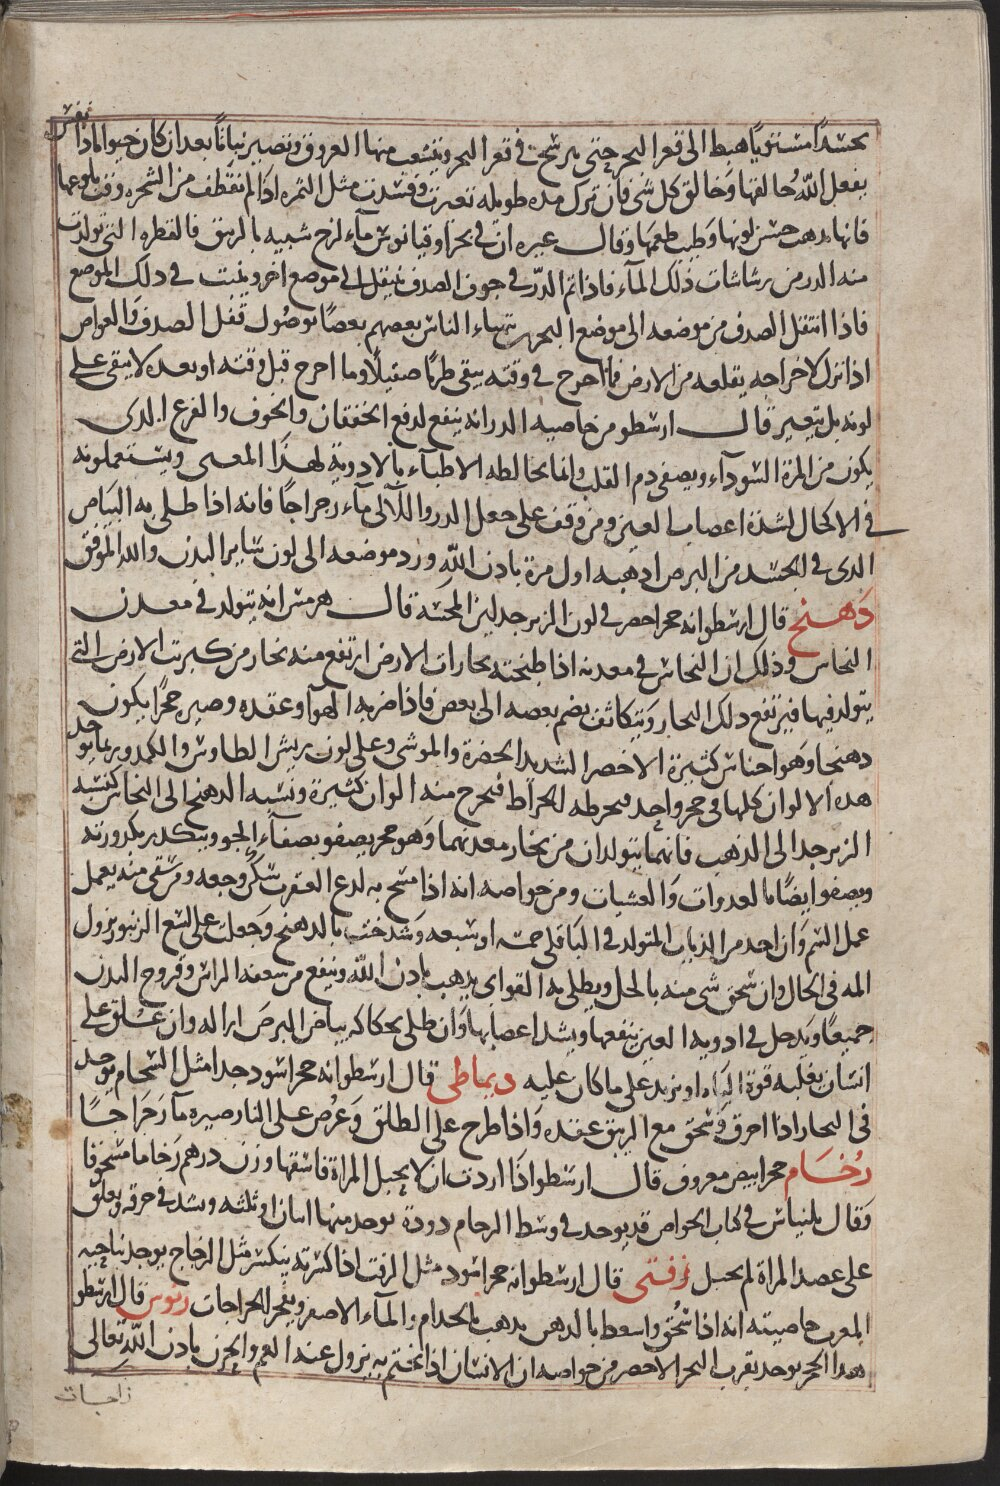 بجسدا مستويا هبط الى قعر البحر حتى يرسخ في قعر البحر ويتشعب منها العروق وتصير نباتا بعد ان كان حيوانا ذا نفس
يفعل الله خالقها وخالق كل شى فان ترك مده طويله تغيرت وفسدت مثل الثمره اذا لم تقطف من الشجره وقت بلوغها
فانها يذهب حسن لونها وطيب طعمها وقال غيره ان في بحر اوقيانوس ماء لزج شبيه بالزيبق فالقطره التى تولدت
منه الدر من رشاشات ذلك الماء فاذا تم الدر في جوف الصدف ينتقل الى موضع اخر ونبت في ذلك الموضع
فاذا انتقل الصدف من موضعه الى موضع البحر يتهيا الناس بعضهم بعضا بوصول قفل الصدف والغواص
اذا نزل لاخراجه يقلعه من الارض فما اخرج في وقته يبقى طريا صقيلا وما اخرج قبل وقته او بعده لا يبقى على
لونه بل يتغير قال ارسطو من خاصيه الدر انه ينفع لدفع الخفقان والخوف والفزع الدى
يكون من المرة السودآء ويصفى دم القلب وانما يخالطه الاطبآء بالادوية لهذا المعنى ويستعملونه
في الاكحال لشدة اعصاب العين ومن وقف على حعل الدر واللآلى مآء رجراجا فانه اذا طلى به البياض
الدى في الجسد من البرص ادهبه اول مرة باذن الله ورد موضعه الى لون ساير البدن والله الموفق
دهنج قال ارسطو انه حجر اخضر في لون الزبرجد لين المجسة قال هرمس انه يتولد في معدن
النحاس وذلك ان النحاس في معدنه اذا طبخته بخارات الارض ارتفع منه بخار من كبريت الارض التى
يتولد فيها فيرتفع ذلك البخار ويتكاثف يضم بعضه الى بعض فاذا ضربه الهوآ وعقده وصيره حجرا يكون
دهنجا وهو اجناس كثيرة الاخضر الشديد الخضرة والموشى وعلى لون ريش الطاوس والكمد وربما يوجد
هذه الالوان كلها في حجر واحد فيخرطه الخراط فيخرج منه الوان كثيرة ونسبه الدهنج الى النحاس كنسبه
الزبرجد الى الذهب فانهما يتولدان من بخار معدنهما وهو حجر يصفو بصفآء الجو ويتكدر بكدورته
ويصفو ايضا بالغدوات والعشيات ومن خواصه انه اذا مسح به لدغ العقرب سكن وجعه ومن سقى منه يعمل
عمل السم وان احد من الذباب المتولد في الباقلى خمسه او سبعه وشدخت بالدهنج وجعلت على لسع الزنبور يزول
المه في الحال وان سحق شى منه بالخل ويطلى به القوابى يذهب باذن الله وينفع من سعفه الراس وقروح البدن
جميعا ويدخل في ادويه العين ينفعها ويشد اعصابها وان طلى بحكاكه بياض البرص ازاله وان علق على
انسان يغلبه قوة الباه او يزيد على ما كان عليه ديماطى قال ارسطو انه حجر اسود جدا مثل السخام يوجد
في البحار اذا احرق وسحق مع الزيبق عقده واذا طرح على الطلق وعرض على النار صيره مآ رجراجا
رخام حجر ابيض معروف قال ارسطو اذا اردت ان لا يحبل المراة فاسقها وزن درهم رخاما مسحوقا
وقال بليناس في كتاب الخواص قد يوجد في وسط الرخام دودة يوخد منها اثنان او ثلثه ويشد في خرقه ويعلق
على عضد المراة لم يحبل زفتى قال ارسطو انه حجر اسود مثل الزفت اذا كسرته ينكسر مثل الزجاج يوجد بناحيه
المغرب خاصيته انه اذا سحق واسعط بالدهن يذهب بالجذام والمآء الاصفر ويفجر الخراجات ريتوس قال ارسطو
هذا الحجر يوجد بقرب البحر الاخضر من خواصه ان الانسان اذا تختم به يزول عنه الغم والحزن باذن الله تعالى
زاجات